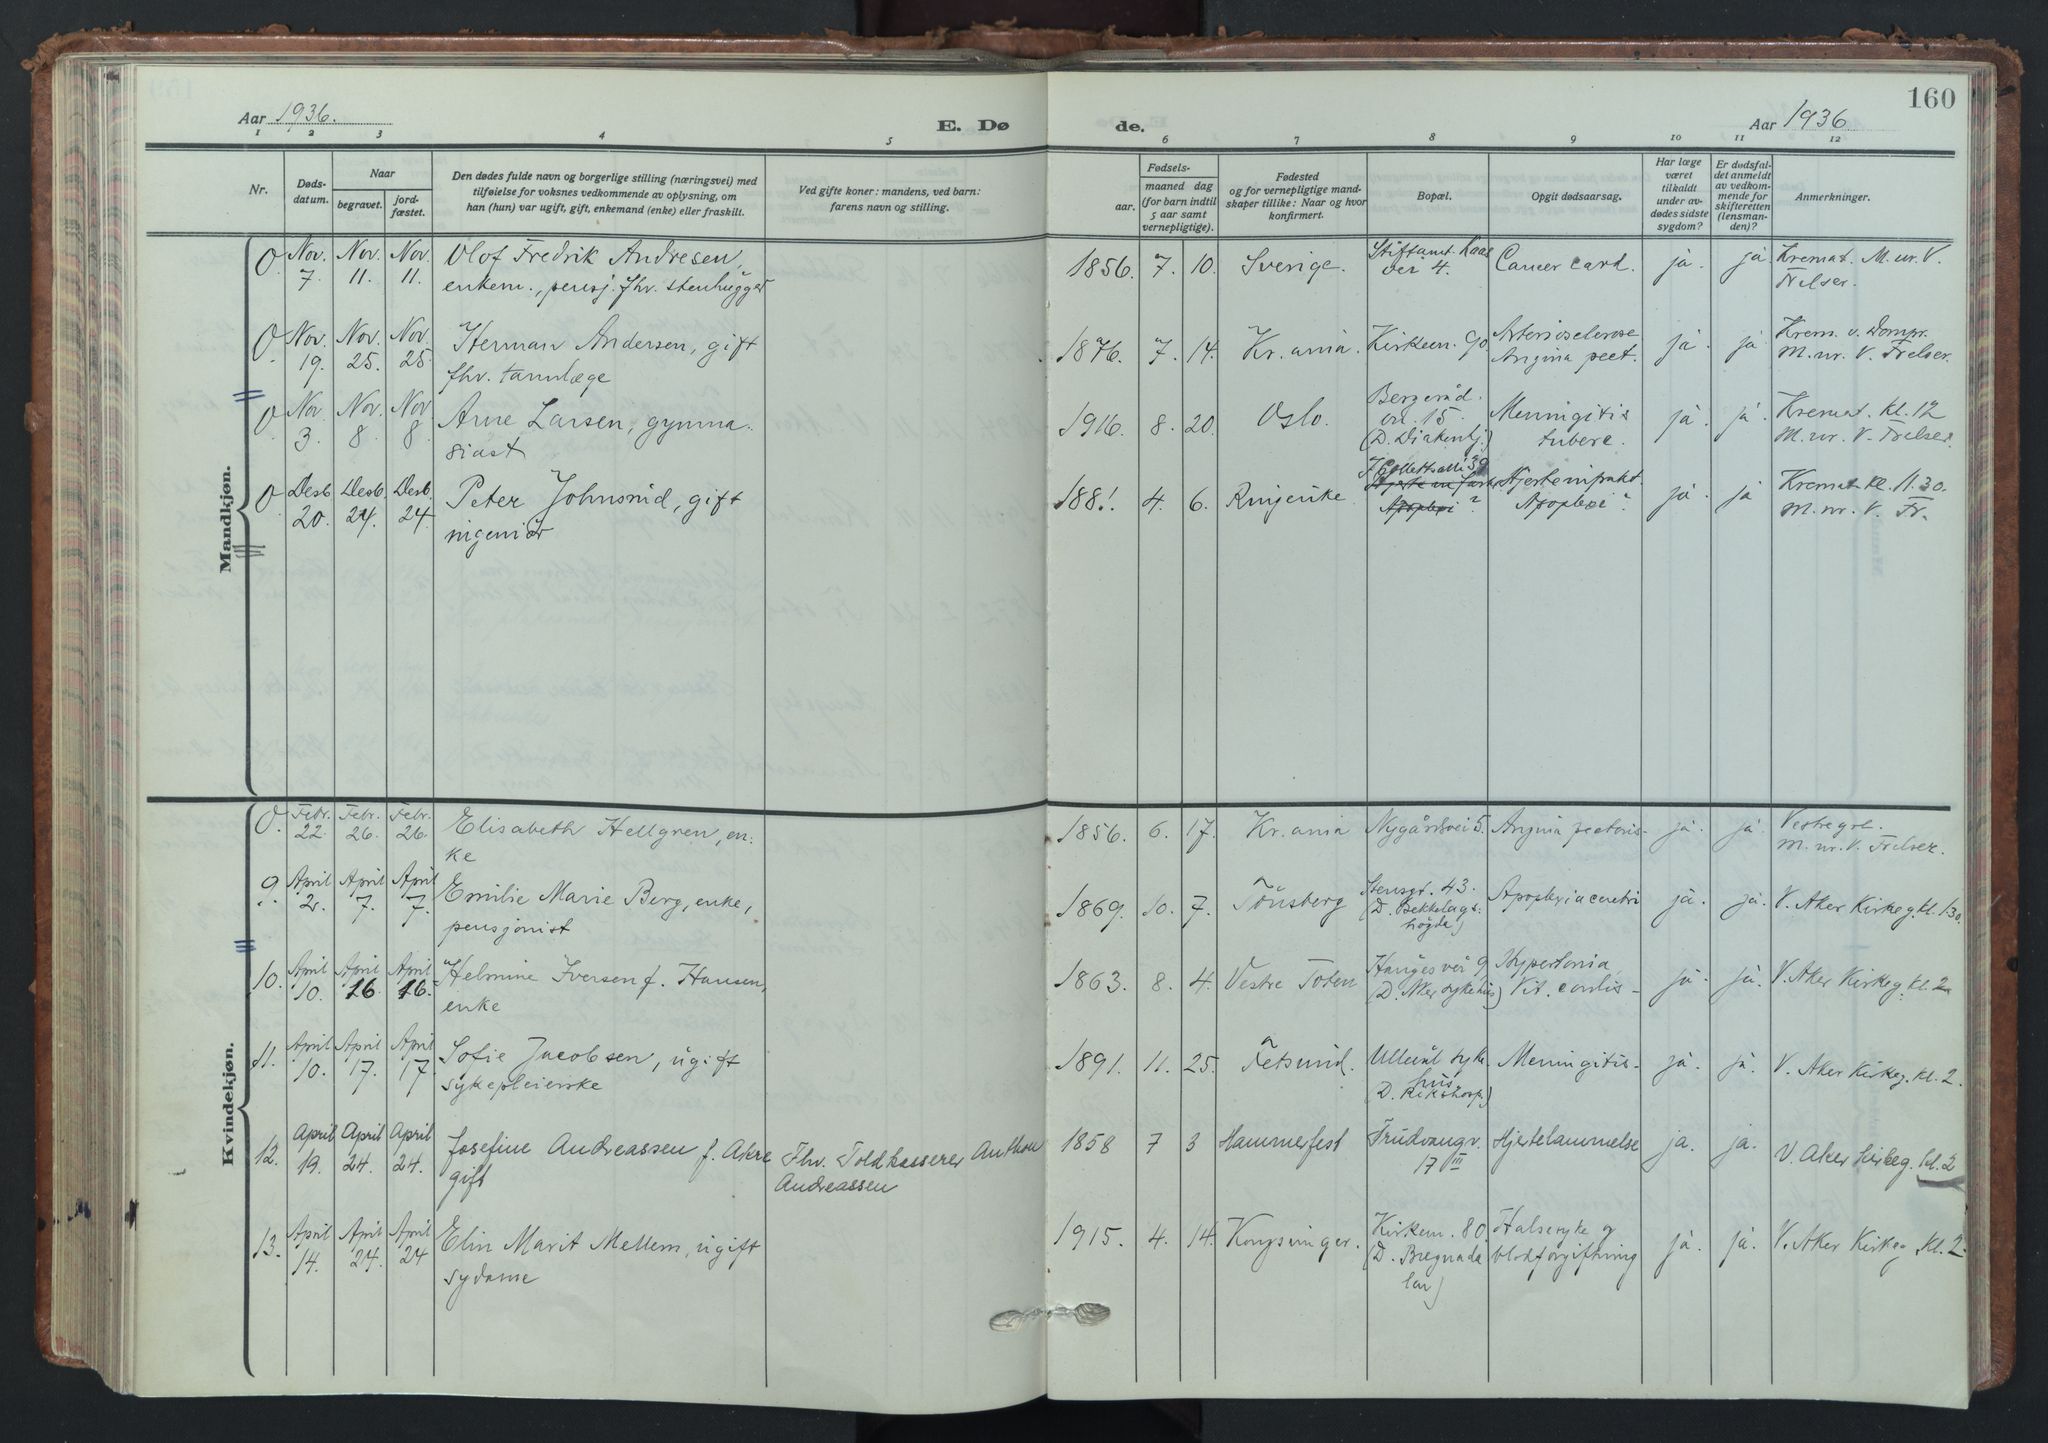 160
Aar 1936.
E. Dø de.
Aar 1936
1 2 3 4 5 6 7 8 9 10 11 12
Nr.
Døds-
datum.
Naar
begravet.
jord-
fæstet.
Den dødes fulde navn og borgerlige stilling (næringsvei) med
tilføielse for voksnes vedkommende av oplysning, om
han (hun) var ugift, gift, enkemand (enke) eller fraskilt.
Ved gifte koner: mandens, ved barn:
farens navn og stilling.
Fødsels-
aar.
maaned dag
(for barn indtil
5 aar samt
vernepligtige).
Fødested
og for vernepligtige mand-
skaper tillike: Naar og hvor
konfirmert.
Bopæl.
Opgit dødsaarsag.
Har læge
været
tilkaldt
under av-
dødes sidste
sygdom?
Er dødsfal-
det anmeldt
av vedkom-
mende for
skifteretten
(lensman-
den)?
Anmerkninger.
Mandkjøn.
0. Nov. 7. Nov. 11. Nov. 11. Olof Fredrik Andresen,
enkem., pensj. fhv. stenhugger
1856. 7. 10. Sverige. Cancer card. ja. ja Kremat. M. nr. V.
Frelser.
0. Nov. 19. Nov. 25. Nov. 25. Herman Andersen, gift
fhv. tannlæge
1876. 7. 14. Kr.ania. Kirkevn. 90 Arteriosclerose
Angina pect. ja. ja. Krem. v. Dompr.
M. nr. V. Frelser.
0. Nov 3. Nov. 8. Nov 8. Arne Larsen, gymna-
siast
1916. 8. 20. Oslo. vn. 15. Meningitis
tuberc. ja. ja. Kremat. kl. 12
M. nr. V. Frelser.
0. Desb. 20. Desb. 24. Desb. 24. Peter Johnsrud, gift
ingeniør
1881. 4. 6. Ringerike J Collettsalle 39
Apoplexi?
Hjerteinfarkt.
Apoplexi? ja. ja Kremat. kl. 11.30.
M. nr. V. Fr.
Kvindekjøn.
0. Febr. 22. Febr. 26. Febr. 26. Elisabeth Hellgren, en-
ke
1856. 6. 17. Kr.ania Nygårdsvei 5. Angina pectoris ja. ja. Vestre grl.
M. nr. V. Frelser.
9. April 2. April 7. April 7. Emilie Marie Berg, enke,
pensjonist
1869. 10. 7. Tönsberg Stensgt. 43.
(D. Bekkelags-
høgda)
Apoplexia cerebri ja. ja. V. Aker Kirkeg. kl. 1.30.
10. April 10. April 16. April 16. Helmine Iversen f. Hansen,
enke
1863. 8. 4. Vestre Toten Haugesvei 9
(D. Aker sykehus)
Hypertonia
Vit. cordis ja. ja. V. Aker Kirkeg. kl. 2
11. April 10. April 17. April 17. Sofie Jacobsen, ugift
sykepleierske
1891. 11. 25. Fetsund. Ullevål syke
hus
(D. Rikshosp.)
Meningitis ja. ja. V. Aker Kirkeg. kl. 2.
12. April 19. April 24. April 24. Josefine Andreassen f. Akre
gift
Fhv. Toldkasserer Anthon
Andreassen
1858 7 3 Hammerfest Trudvangv.
17 III
Hjertelammelse ja. ja. V. Aker Kirkeg. kl. 2
13. April 14. April 24. April 24 Elin Marit Mellem, ugift
sydame
1915. 4. 14. Kongsvinger. Kirkevn. 80.
Halsesyke og
blodforgiftning ja. ja. V. Aker Kirkeg. kl. 2